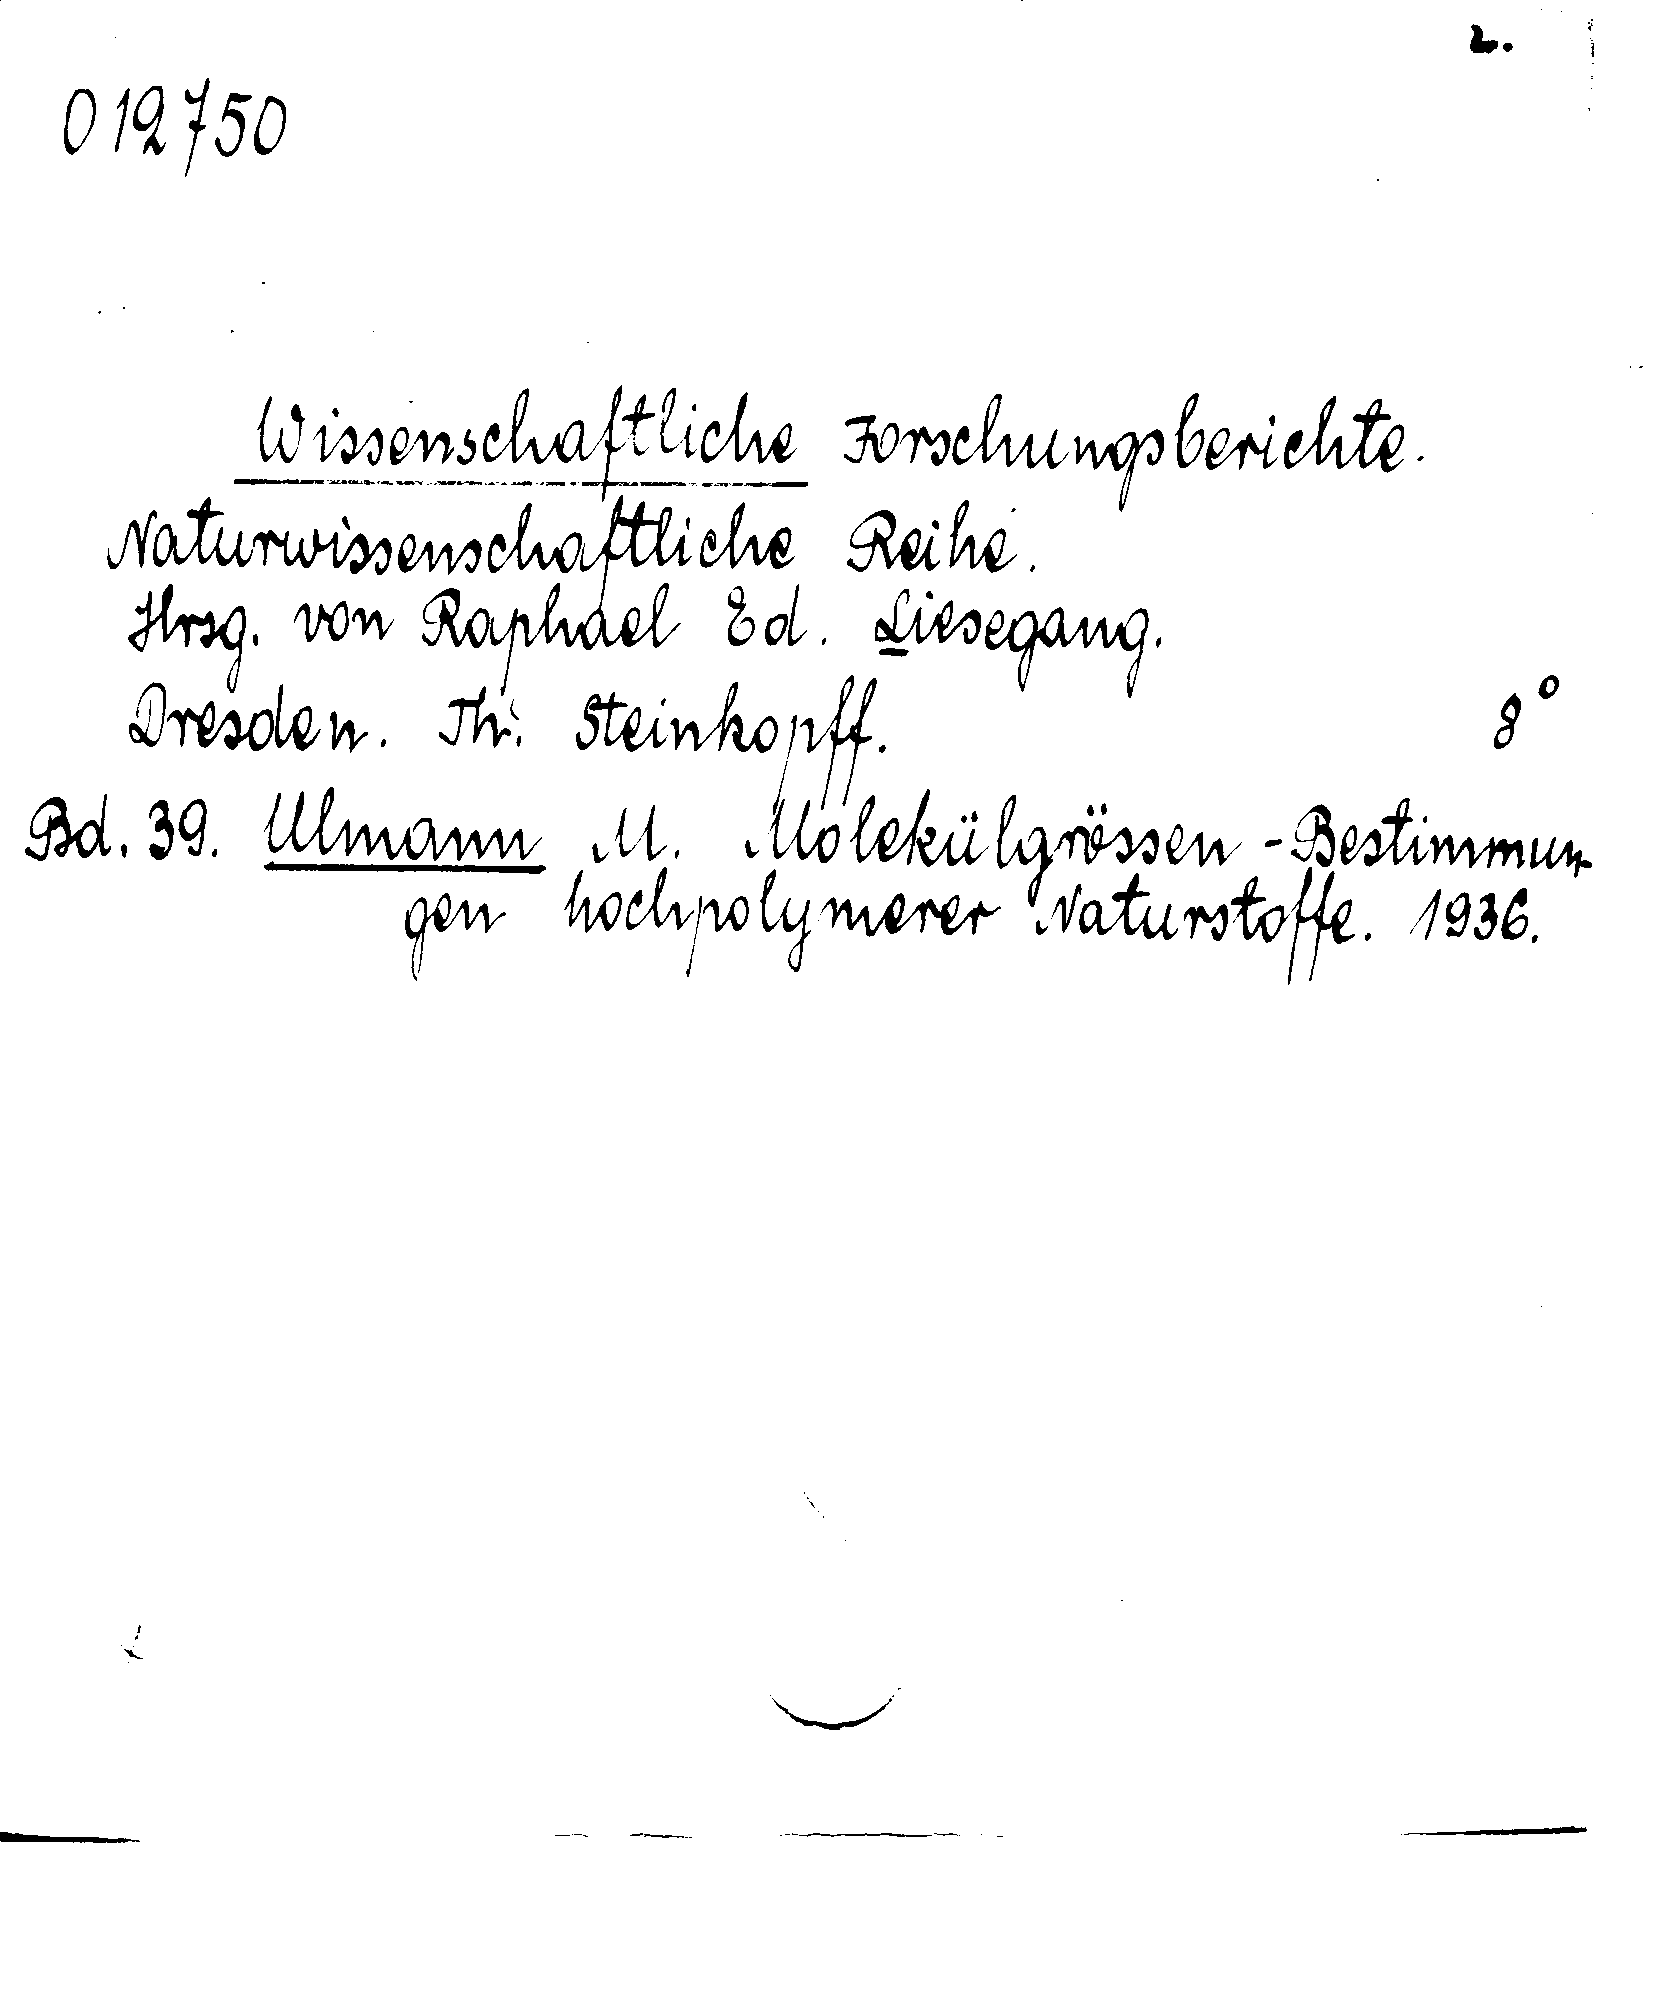 2.
012750
Wissenschaftliche Forschungsberichte.
Naturwissenschaftliche Reihe.
Hrsg. von Raphael Ed. Liesegang.
Dresden. Th. Steinkopff. 8°
Bd. 39. Ulmann M. Molekülgrössen-Bestimmun-
gen hochpolymerer Naturstoffe. 1936.